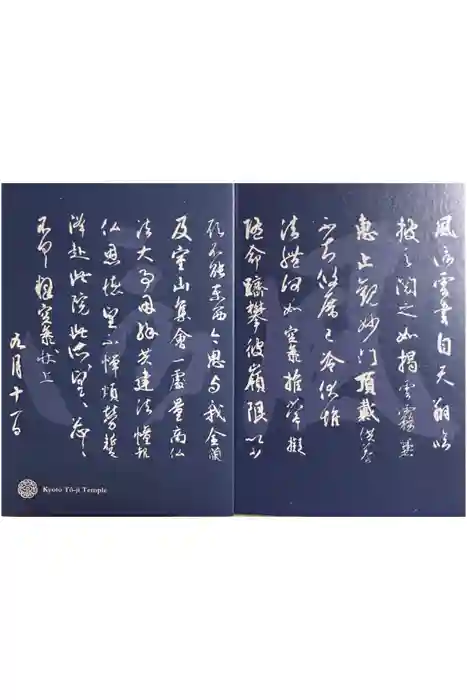 風信雲書自天翔臨
披之閲之如掲雲霧兼
恵止観妙門頂戴供養
不知攸厝已冷伏惟
法體何如空海推常擬
随命躋攀彼嶺限以少
願不能東西今思与我金蘭
及室山集會一處量商仏
法大事因縁共建法幢報
仏恩徳望不憚煩勞蹔
降赴此院此所望々忩々
不具釋空海状上
九月十一日
Kyoto Tō-ji Temple